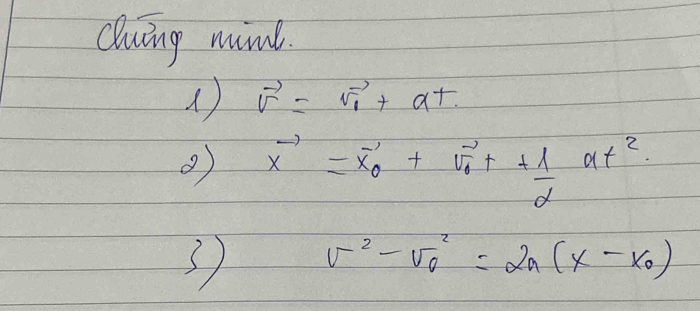 Chứng minh.
1) v⃗ = v⃗₀ + at.
2) x⃗ = x⃗₀ + v⃗₀t + 1/2 at².
3) v² - v₀² = 2a(x - x₀)